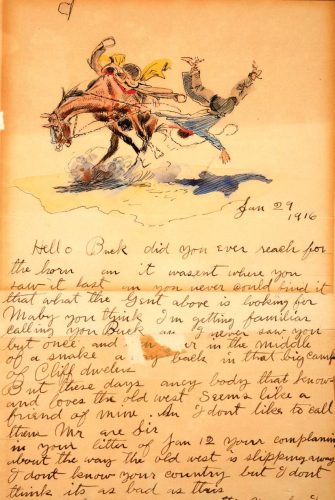 Jan 29
1916
Hello Buck did you ever reach for
the horn an it wasent where you
saw it last an you never could find it
that what the Gent above is looking for
Maby you think I'm getting familiar
calling you Buck as I never saw you
but once and in the middle
of a snake a back in that big camp
of Cliff dwelers
But these days aney body that know
and loves the old west seems like a
friend of mine. An I dont like to call
them Mr are Sir
in your litter of Jan 12 your complaning
about the way the old west is slipping away
I dont know your country but I dont
think its as bad as this